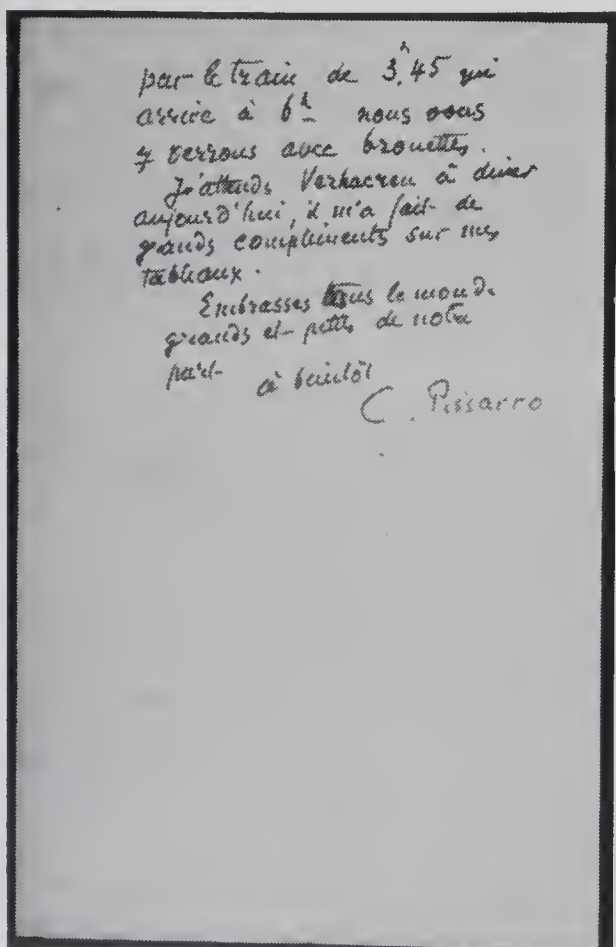 par le train de 3h,45 qui
arrive à 6h nous vous
y verrons avec brouettes.
J'attends Verhaeren à diner
aujourd'hui, il m'a fait de
grands compliments sur mes
tableaux.
Embrasses tous le monde
grands et petits de notre
part
à bientôt
C. Pissarro